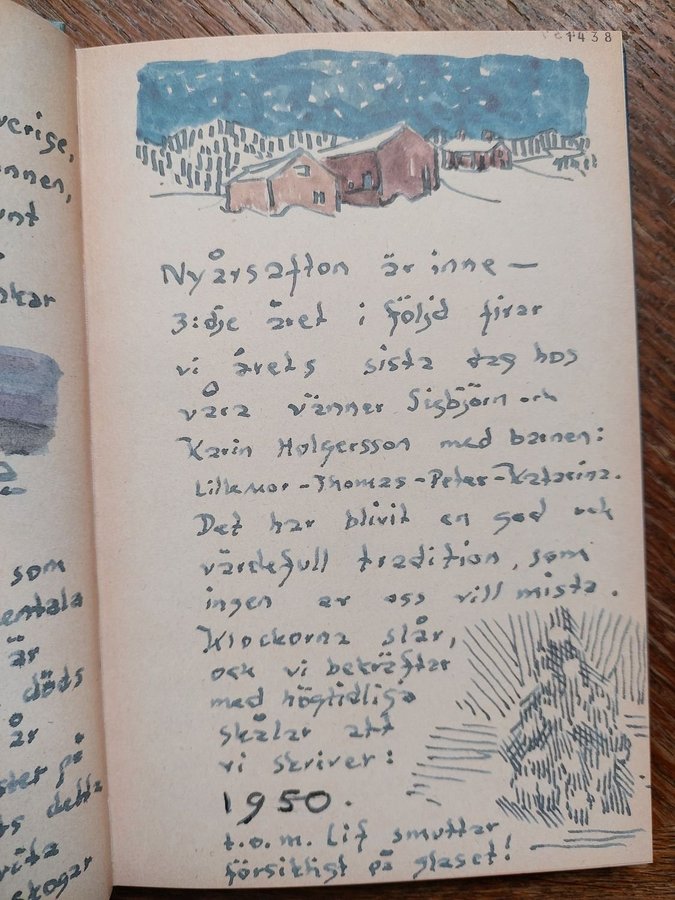 verige,
nnen,
unt
nkar
som
entala
är
döds
är
ster på
ts detta
rita
skogar
1438
Nyårsafton är inne —
3:dje året i följd firar
vi årets sista dag hos
våra vänner Sigbjörn och
Karin Holgersson med barnen:
Lillemor - Thomas - Peter - Katarina.
Det har blivit en god och
värdefull tradition, som
ingen av oss vill mista.
Klockorna slår,
och vi bekräftar
med högtidliga
skålar att
vi skriver:
1950.
t.o.m. Lif smuttar
försiktigt på glaset!